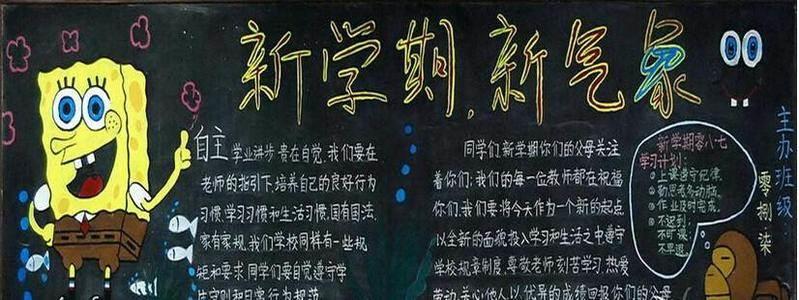 新学期,新气象
自主 学业进步,贵在自觉,我们要在
老师的指引下,培养自己的良好行为
习惯,学习习惯和生活习惯,国有国法,
家有家规,我们学校同样有一些规
矩和要求,同学们要自觉遵守学
生守则和日常行为规范
同学们,新学期你们的父母关注
着你们;我们的每一位教师都在祝福
你们,我们要将今天作为一个新的起点
以全新的面貌投入学习和生活之中遵守
学校规章制度,尊敬老师,刻苦学习,热爱
劳动,关心他人,以优异的成绩回报你们的父母
新学期零八七
学习计划:
①上课遵守纪律
②勤思考多动脑。
③作业及时完成。
④不迟到
不旷课
不早退
主办班级:
零捌柒